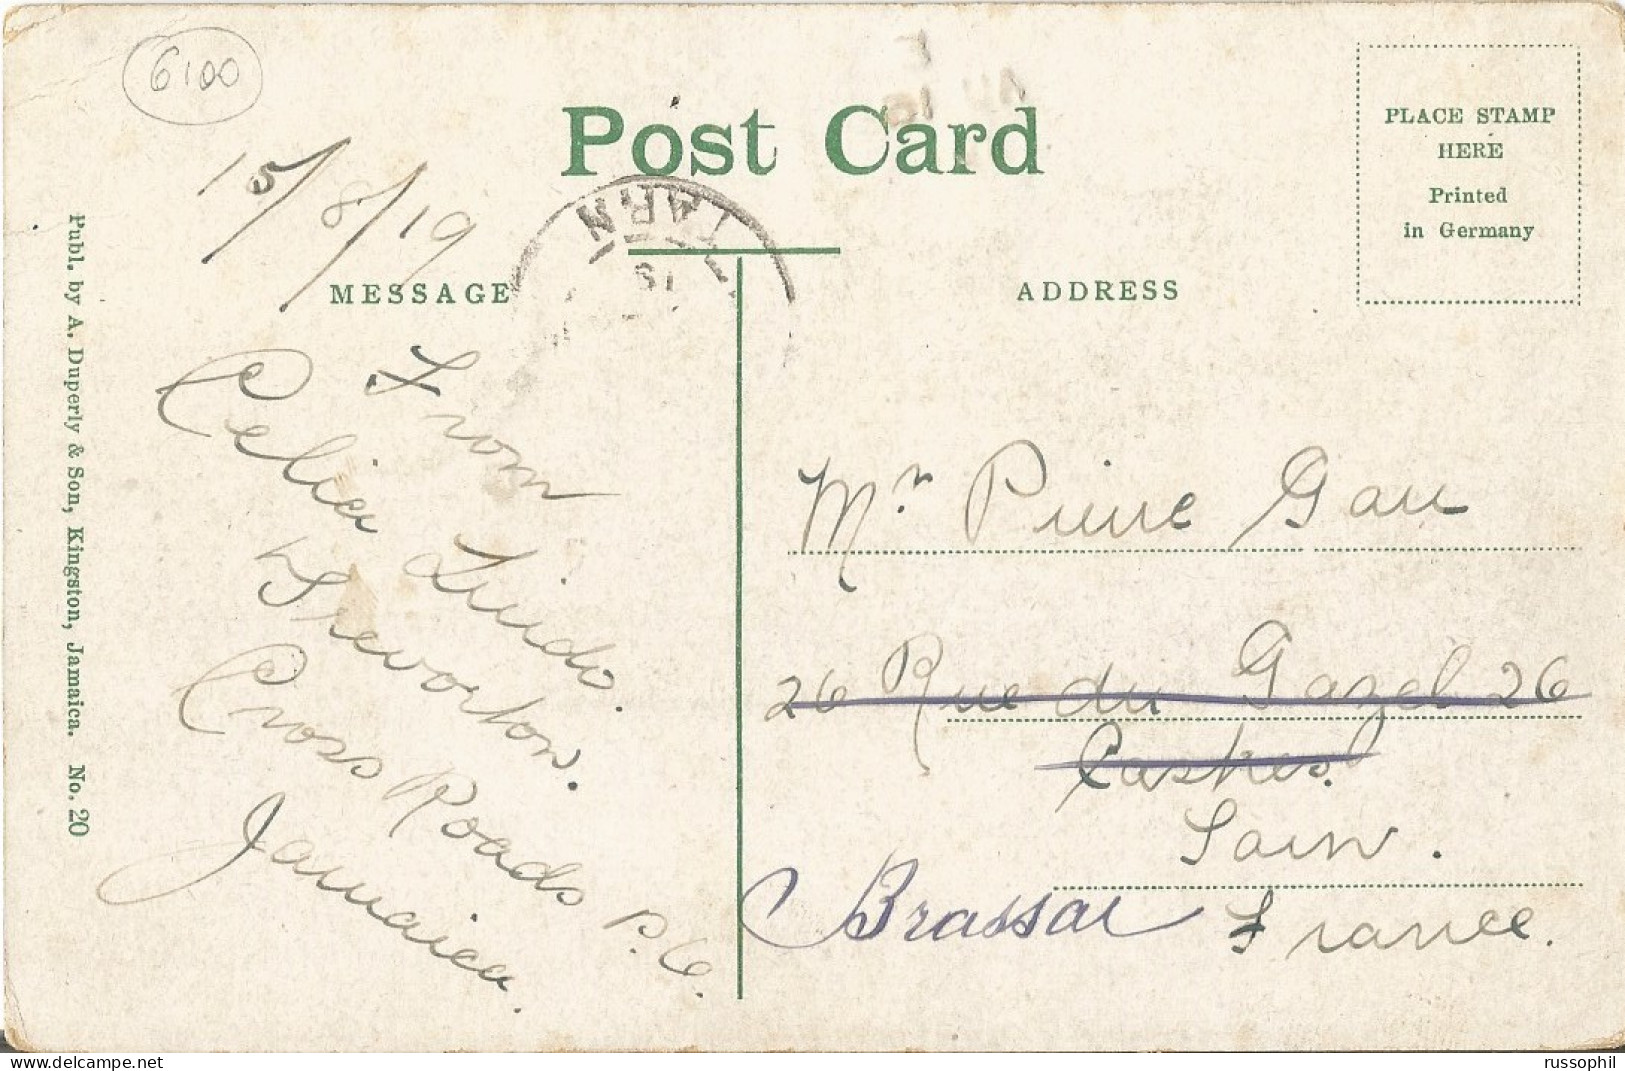 6100
Post Card
PLACE STAMP
HERE
Printed
in Germany
15/8/19
TARN
MESSAGE
ADDRESS
From
Celia Lindo.
Trevorton.
Cross Roads P.O.
Jamaica.
Mr Pierre Gau
26 Rue du Gazel 26
Castres
Tarn.
Brassac
France.
Publ. by A. Duperly & Son, Kingston, Jamaica. No. 20
russophil